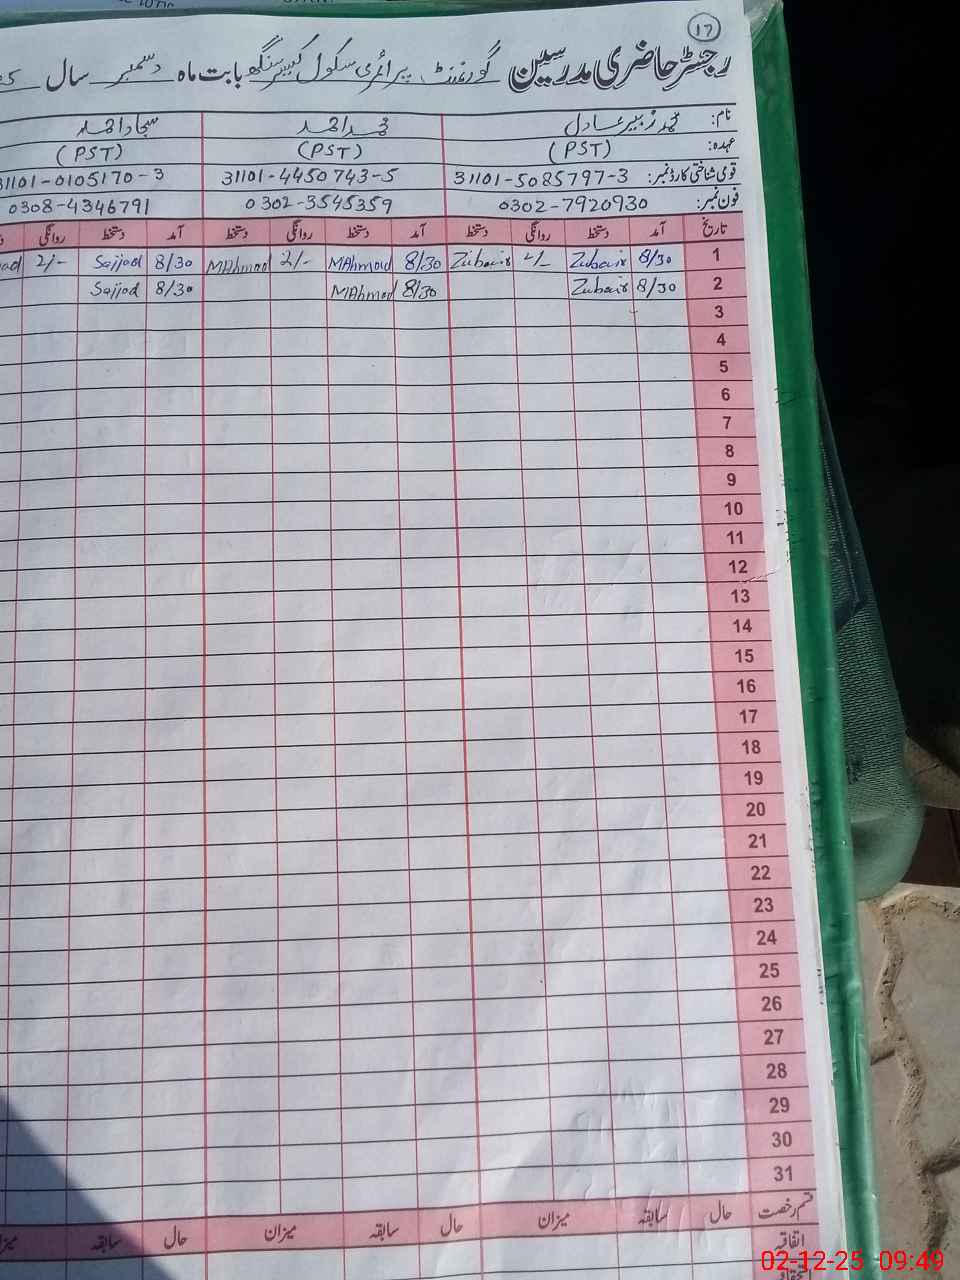 ۱۷
رجسٹر حاضری مدرسین گورنمنٹ پرائمری سکول کیسر سنگھ بابت ماہ دسمبر سال
نام: محمد زبیر عادل محمد احمد سجاد احمد
عہدہ: (PST) (PST) (PST)
قومی شناختی کارڈ نمبر: 31101-5085797-3 31101-4450743-5 31101-0105170-3
فون نمبر: 0302-7920930 0302-3545359 0308-4346791
تاریخ آمد دستخط روانگی دستخط آمد دستخط روانگی دستخط آمد دستخط روانگی
1 8/30 Zubair 2/- Zubair 8/30 MAhmad 2/- MAhmad 8/30 Sajjad 2/-
2 8/30 Zubair 8/30 MAhmad 8/30 Sajjad
3
4
5
6
7
8
9
10
11
12
13
14
15
16
17
18
19
20
21
22
23
24
25
26
27
28
29
30
31
قسم رخصت حال سابقہ میزان حال سابقہ میزان حال سابقہ میزان
اتفاقیہ
02-12-25 09:49